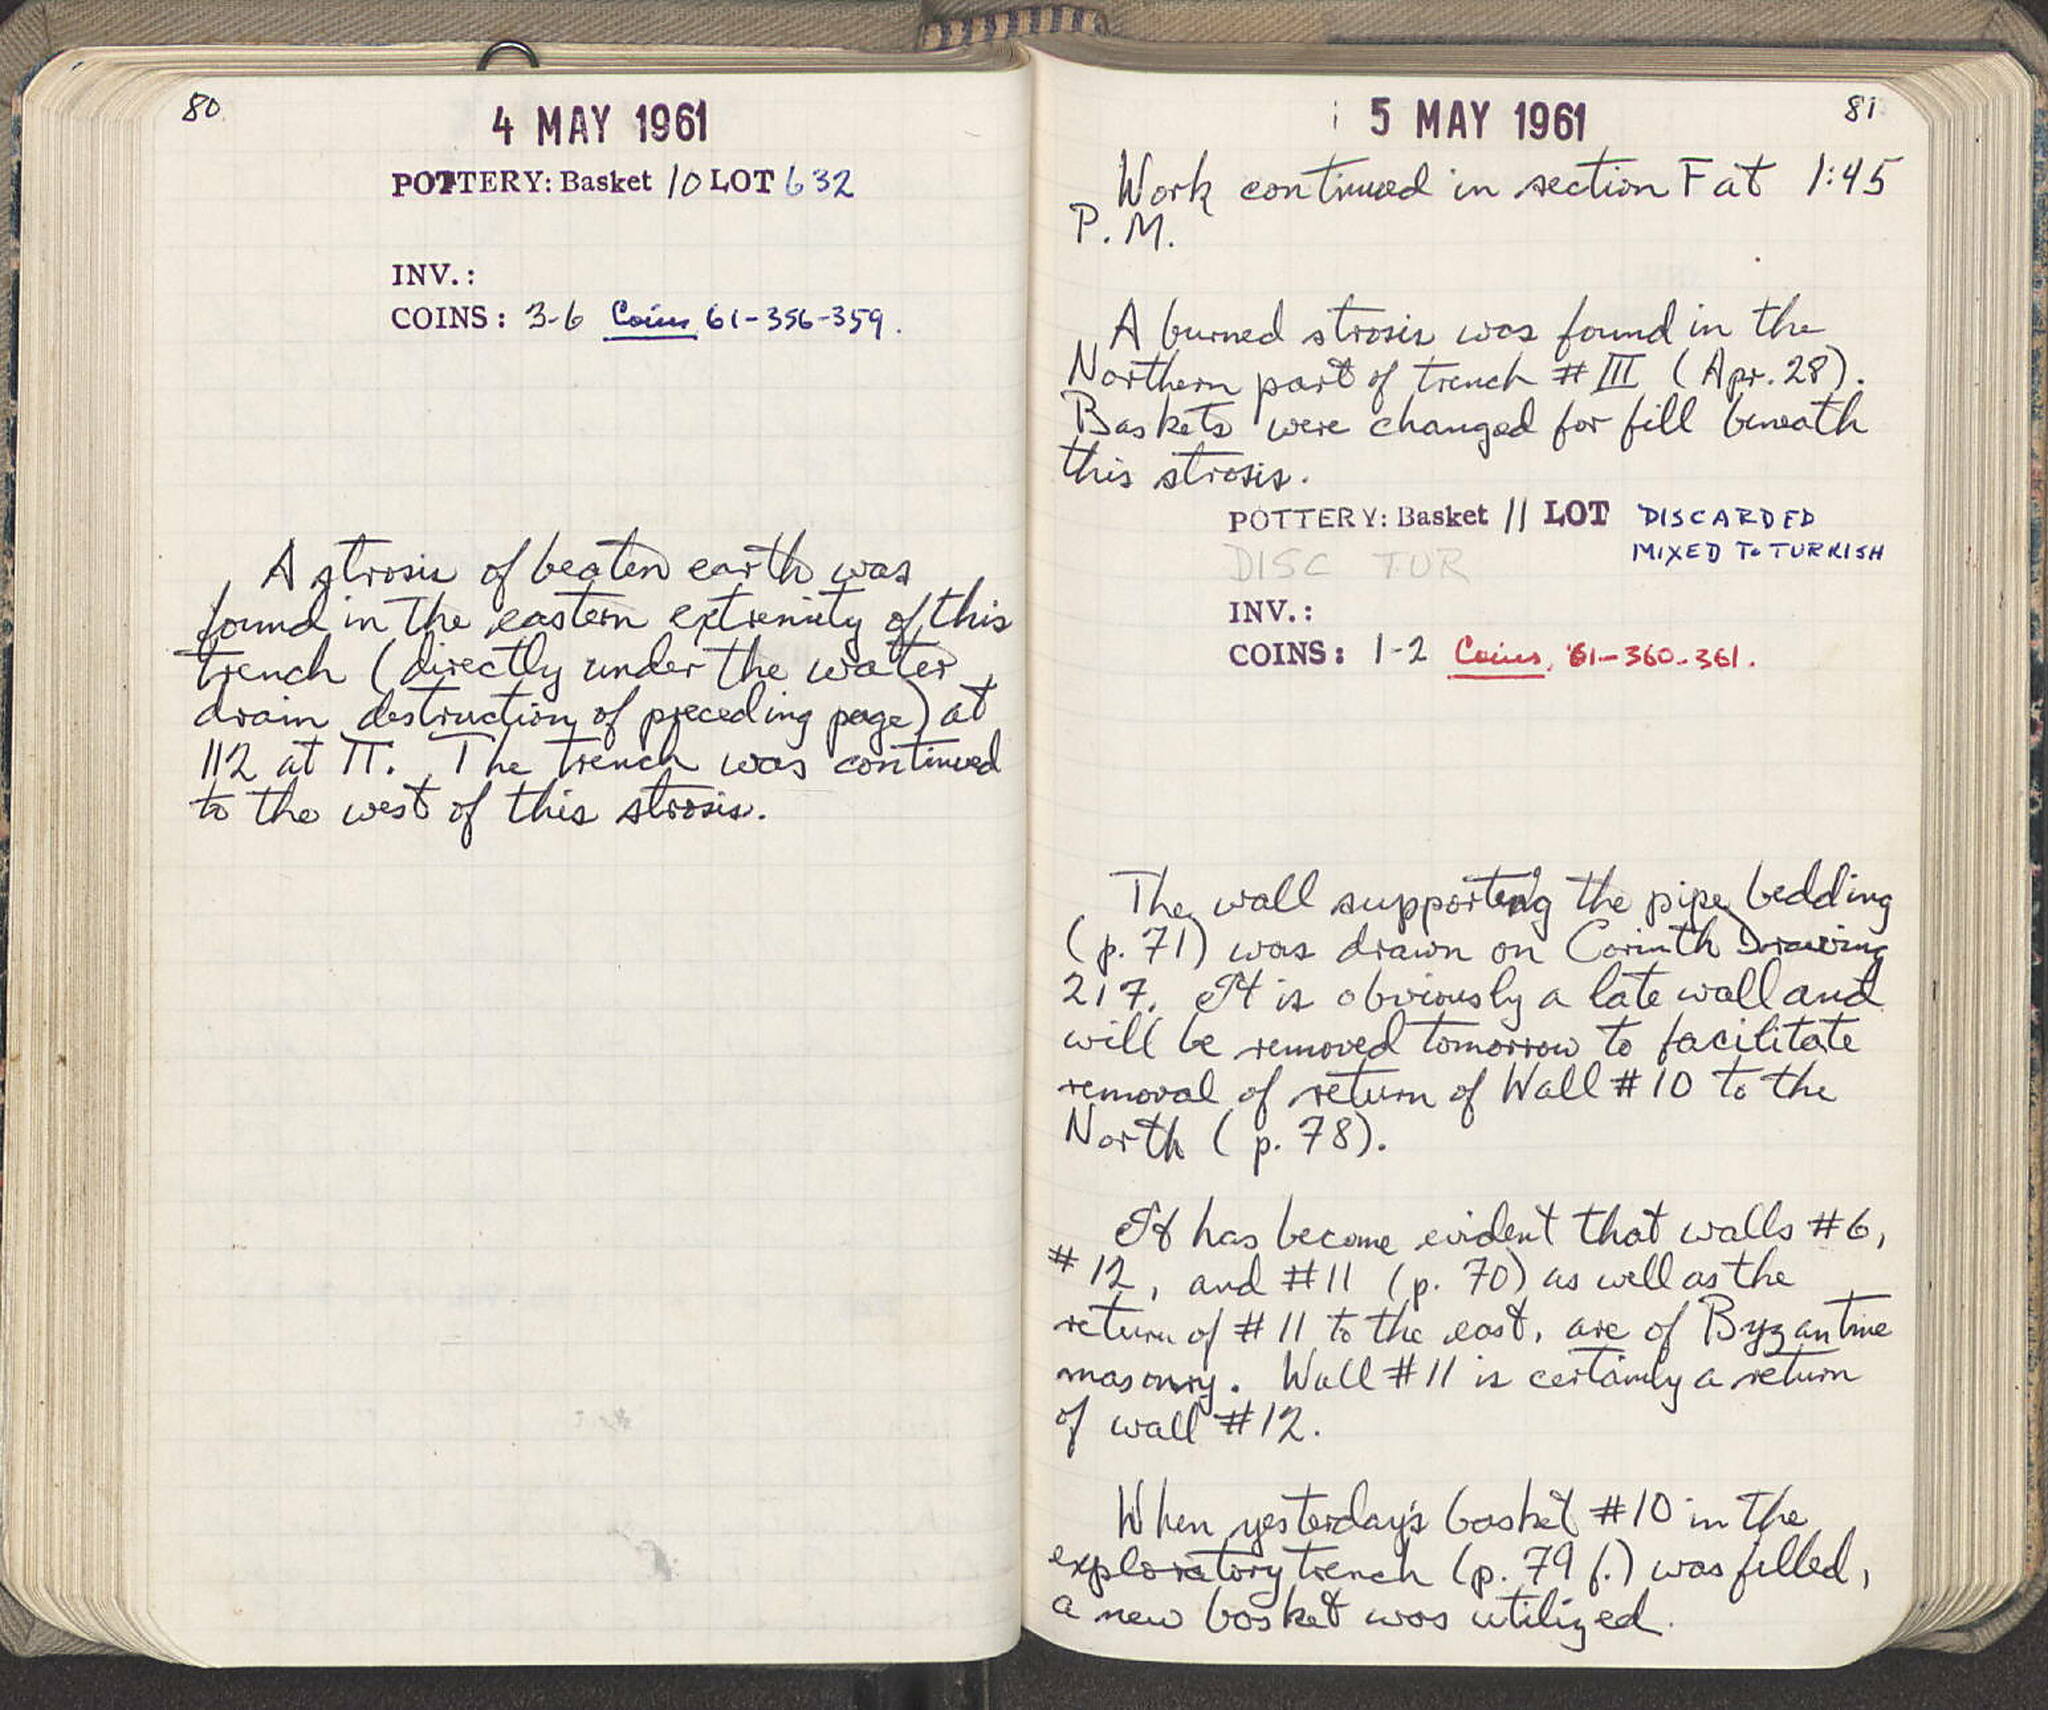 80
4 MAY 1961
POTTERY: Basket 10 LOT 632
INV.:
COINS: 3-6 Coins 61-356-359.
A strosis of beaten earth was
found in the eastern extremity of this
trench (directly under the water
drain destruction of preceding page) at
112 at TT. The trench was continued
to the west of this strosis.
5 MAY 1961
81
Work continued in section F at 1:45
P.M.
A burned strosis was found in the
Northern part of trench # III (Apr. 28).
Baskets were changed for fill beneath
this strosis.
POTTERY: Basket 11 LOT DISCARDED
MIXED TO TURKISH
DISC TUR
INV.:
COINS: 1-2 Coins, 61-360-361.
The wall supporting the pipe bedding
(p. 71) was drawn on Corinth Drawing
217. It is obviously a late wall and
will be removed tomorrow to facilitate
removal of return of Wall # 10 to the
North (p. 78).
It has become evident that walls #6,
#12, and #11 (p. 70) as well as the
return of #11 to the east, are of Byzantine
masonry. Wall #11 is certainly a return
of wall #12.
When yesterday's basket #10 in the
exploratory trench (p. 79 f.) was filled,
a new basket was utilized.